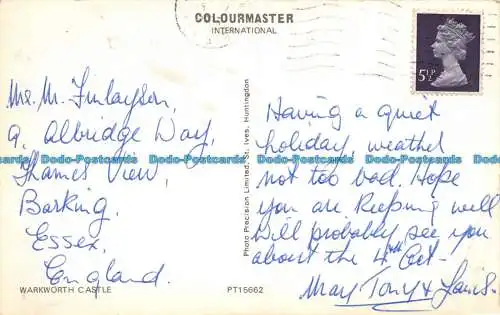 COLOURMASTER
INTERNATIONAL
5½P
Mrs. M. Finlayson,
9, Albridge Way,
Thames View,
Barking,
Essex,
England.
WARKWORTH CASTLE
Photo Precision Limited, St. Ives, Huntingdon
PT15662
Having a quiet
holiday, weather
not too bad. Hope
you are keeping well
Will probably see you
about the 4th Oct-
May Tony &
Dodo-Postcards Dodo-Postcards Dodo-Postcards Dodo-Postcards